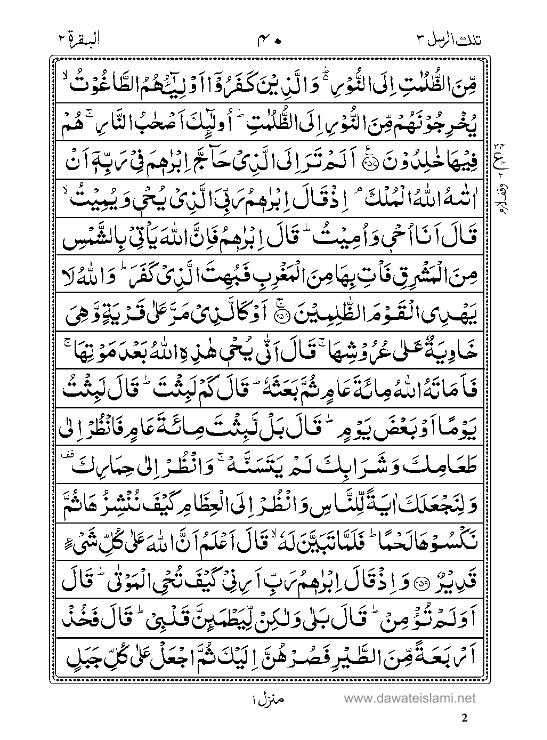 تلك الرسل ٣ ٤٠ البقرة ٢
مِّنَ الظُّلُمٰتِ اِلَى النُّوْرِ ؕ۬ وَالَّذِيْنَ كَفَرُوْۤا اَوْلِيٰٓـُٔهُمُ الطَّاغُوْتُ ۙ
يُخْرِجُوْنَهُمْ مِّنَ النُّوْرِ اِلَى الظُّلُمٰتِ ؕ اُولٰٓئِكَ اَصْحٰبُ النَّارِ ۚ هُمْ
فِيْهَا خٰلِدُوْنَ ۟ اَلَمْ تَرَ اِلَى الَّذِيْ حَآجَّ اِبْرٰهٖمَ فِيْ رَبِّهٖۤ اَنْ
اٰتٰىهُ اللّٰهُ الْمُلْكَ ۘ اِذْ قَالَ اِبْرٰهٖمُ رَبِّيَ الَّذِيْ يُحْيٖ وَيُمِيْتُ ۙ
قَالَ اَنَا اُحْيٖ وَاُمِيْتُ ؕ قَالَ اِبْرٰهٖمُ فَاِنَّ اللّٰهَ يَاْتِيْ بِالشَّمْسِ
مِنَ الْمَشْرِقِ فَاْتِ بِهَا مِنَ الْمَغْرِبِ فَبُهِتَ الَّذِيْ كَفَرَ ؕ وَاللّٰهُ لَا
يَهْدِي الْقَوْمَ الظّٰلِمِيْنَ ﴿۲۵۸﴾ اَوْ كَالَّذِيْ مَرَّ عَلٰى قَرْيَةٍ وَّهِيَ
خَاوِيَةٌ عَلٰى عُرُوْشِهَا ۚ قَالَ اَنّٰى يُحْيٖ هٰذِهِ اللّٰهُ بَعْدَ مَوْتِهَا ۚ
فَاَمَاتَهُ اللّٰهُ مِائَةَ عَامٍ ثُمَّ بَعَثَهٗ ؕ قَالَ كَمْ لَبِثْتَ ؕ قَالَ لَبِثْتُ
يَوْمًا اَوْ بَعْضَ يَوْمٍ ؕ قَالَ بَلْ لَّبِثْتَ مِائَةَ عَامٍ فَانْظُرْ اِلٰى
طَعَامِكَ وَشَرَابِكَ لَمْ يَتَسَنَّهْ ۚ وَانْظُرْ اِلٰى حِمَارِكَ قف
وَلِنَجْعَلَكَ اٰيَةً لِّلنَّاسِ وَانْظُرْ اِلَى الْعِظَامِ كَيْفَ نُنْشِزُهَا ثُمَّ
نَكْسُوْهَا لَحْمًا ؕ فَلَمَّا تَبَيَّنَ لَهٗ ۙ قَالَ اَعْلَمُ اَنَّ اللّٰهَ عَلٰى كُلِّ شَيْءٍ
قَدِيْرٌ ﴿۲۵۹﴾ وَاِذْ قَالَ اِبْرٰهٖمُ رَبِّ اَرِنِيْ كَيْفَ تُحْيِ الْمَوْتٰى ؕ قَالَ
اَوَلَمْ تُؤْمِنْ ؕ قَالَ بَلٰى وَلٰكِنْ لِّيَطْمَئِنَّ قَلْبِيْ ؕ قَالَ فَخُذْ
اَرْبَعَةً مِّنَ الطَّيْرِ فَصُرْهُنَّ اِلَيْكَ ثُمَّ اجْعَلْ عَلٰى كُلِّ جَبَلٍ
منزل ١ www.dawateislami.net
2